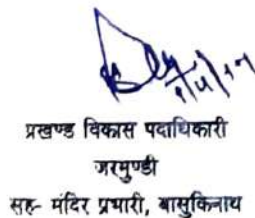 प्रखण्ड विकास पदाधिकारी
जरमुण्डी
सह- मंदिर प्रभारी, बासुकिनाथ